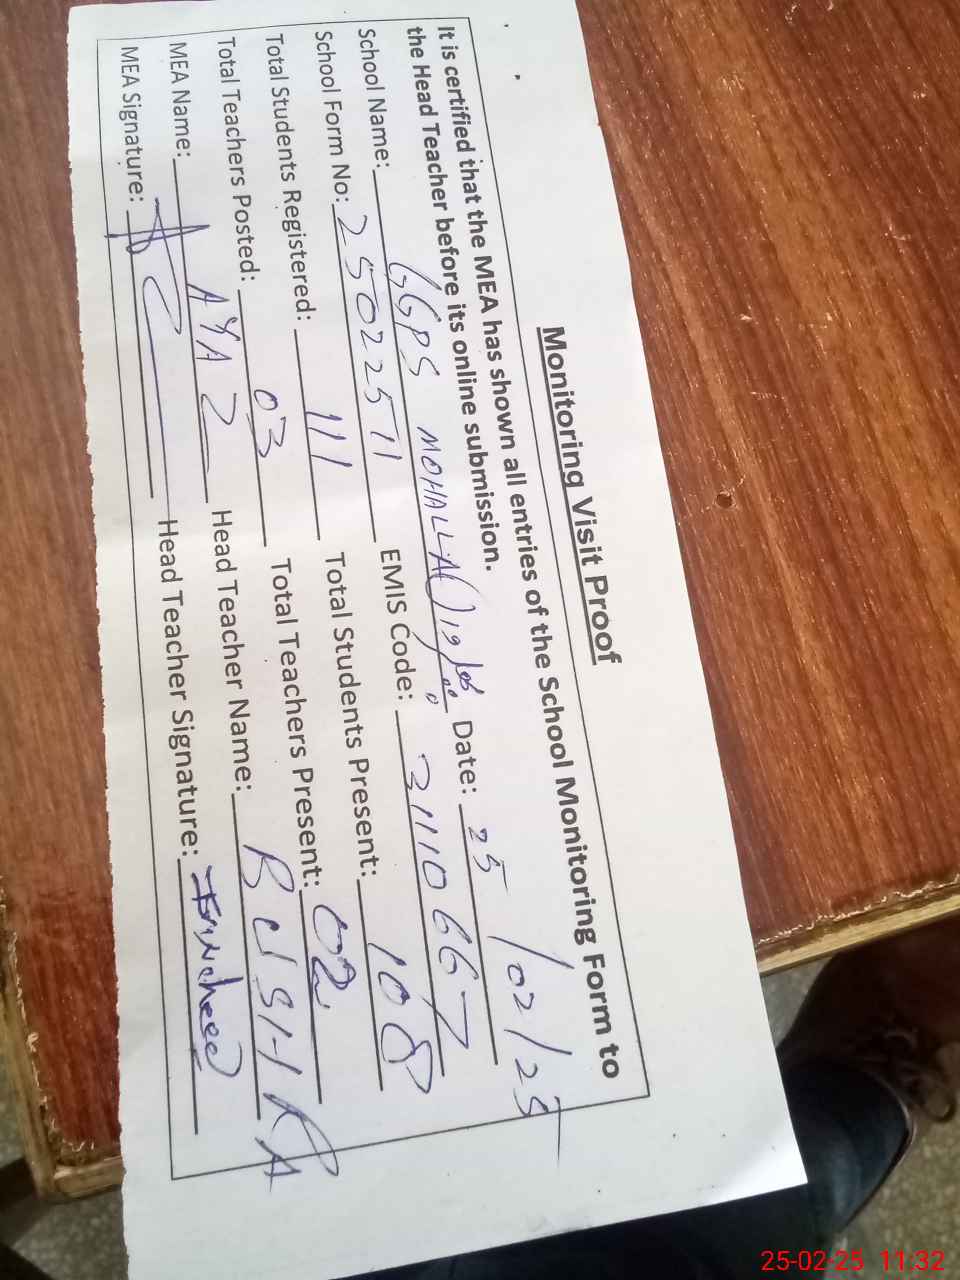 Monitoring Visit Proof
It is certified that the MEA has shown all entries of the School Monitoring Form to
the Head Teacher before its online submission.
School Name: GGPS MOHALLA Date: 25/02/25
School Form No: 25022511 EMIS Code: 31110667
Total Students Registered: 111 Total Students Present: 108
Total Teachers Posted: 03 Total Teachers Present: 02
MEA Name: AYAZ Head Teacher Name: BUSHRA
MEA Signature: Head Teacher Signature:
25-02-25 11:32